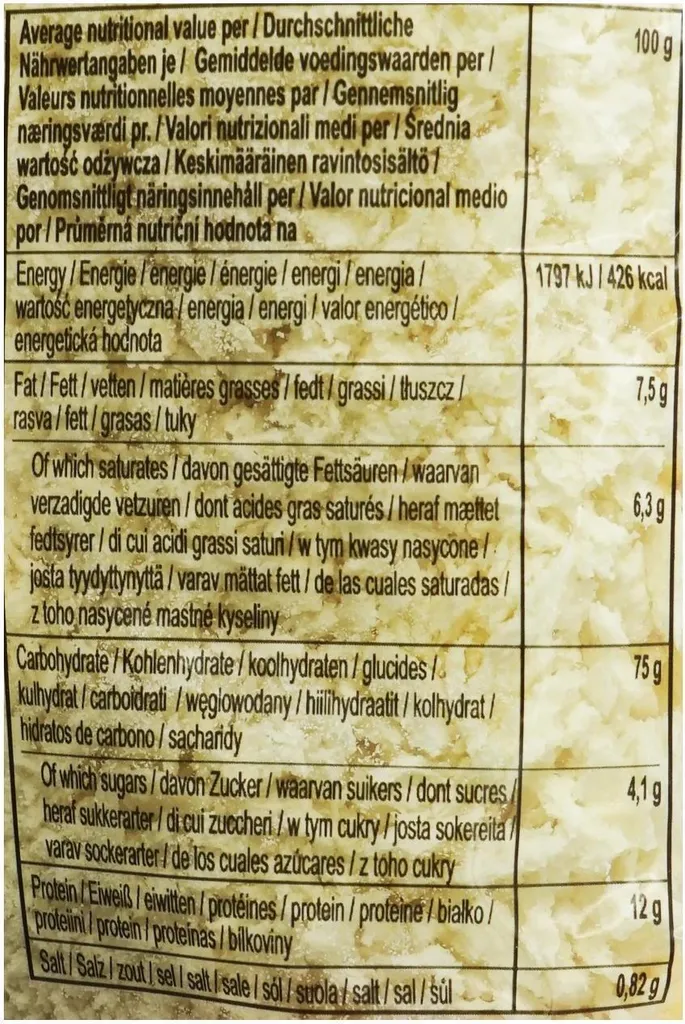 Average nutritional value per / Durchschnittliche
Nährwertangaben je / Gemiddelde voedingswaarden per /
Valeurs nutritionnelles moyennes par / Gennemsnitlig
næringsværdi pr. / Valori nutrizionali medi per / Średnia
wartość odżywcza / Keskimääräinen ravintosisältö /
Genomsnittligt näringsinnehåll per / Valor nutricional medio
por / Průměrná nutriční hodnota na
100 g
Energy / Energie / energie / énergie / energi / energia /
wartość energetyczna / energia / energi / valor energético /
energetická hodnota
1797 kJ / 426 kcal
Fat / Fett / vetten / matières grasses / fedt / grassi / tłuszcz /
rasva / fett / grasas / tuky
7,5 g
Of which saturates / davon gesättigte Fettsäuren / waarvan
verzadigde vetzuren / dont acides gras saturés / heraf mættet
fedtsyrer / di cui acidi grassi saturi / w tym kwasy nasycone /
josta tyydyttynyttä / varav mättat fett / de las cuales saturadas /
z toho nasycené mastné kyseliny
6,3 g
Carbohydrate / Kohlenhydrate / koolhydraten / glucides /
kulhydrat / carboidrati / węglowodany / hiilihydraatit / kolhydrat /
hidratos de carbono / sacharidy
75 g
Of which sugars / davon Zucker / waarvan suikers / dont sucres /
heraf sukkerarter / di cui zuccheri / w tym cukry / josta sokereita /
varav sockerarter / de los cuales azúcares / z toho cukry
4,1 g
Protein / Eiweiß / eiwitten / protéines / protein / proteine / białko /
proteiini / protein / proteínas / bílkoviny
12 g
Salt / Salz / zout / sel / salt / sale / sól / suola / salt / sal / sůl
0,82 g